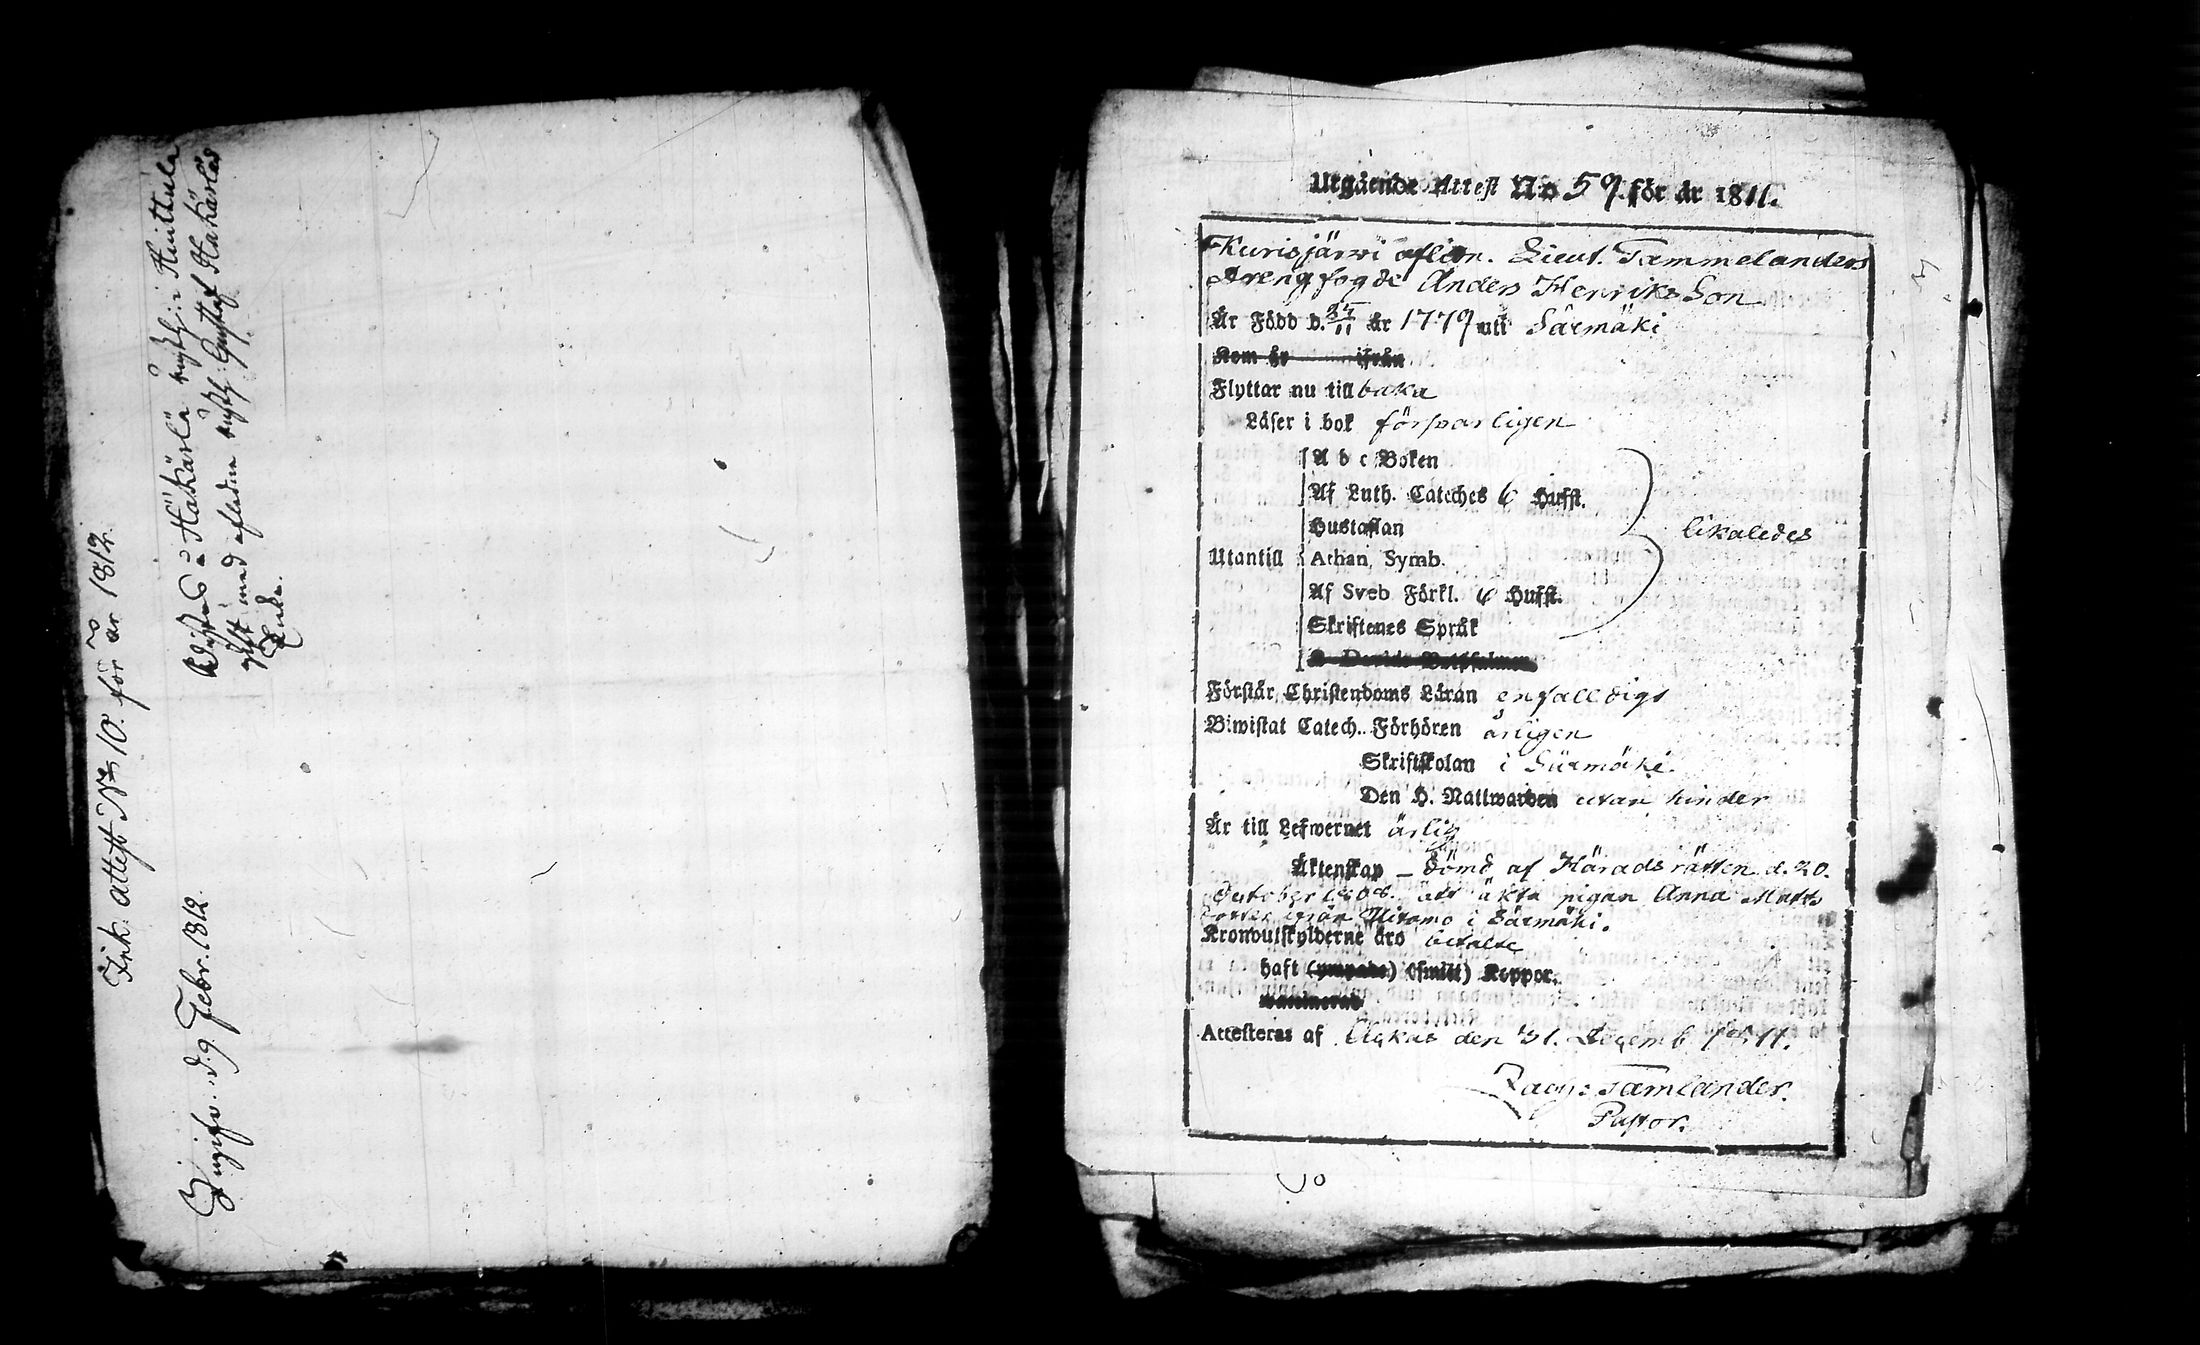 Ink. attest No 10. för år 1812.
Hakärlä rusth: i Hunttula
gift med afledne rusth: Gustaf Hakärläs
Enka.
Ingifv. d. 9. Febr. 1812.
Utgående Attest No 59. för år 1811.
Kurisjärwi aflidn. Lieut. Tammelanders
Drengfogde Anders Henriks Son
Är Född d. 27/11 år 1779 uti Särmäki
Kom år ifrån
Flyttar nu till baka
Läser i bok försvarligen
A b c Boken
Af Luth. Cateches 6 Hufst.
Hustaflan
likaledes
Utantill Athan. Symb.
Af Sveb Förkl. 6 Hufst.
Skriftenes Språk
Förstår Christendoms Läran enfalldigt
Biwistat Catech. Förhören årligen
Skriftskolan i Särmäki.
Den H. Nattwarden utan hinder
Är till Lefwernet ärlig
Äktenskap – dömd af Härads rätten d. 20.
October 1808. att äkta pigan Anna Matts
dotter ifrån i Särmäki.
Kronoutskylderne äro betalte
haft (ympade) (smitt) Koppor.
Attesteras af Akkas den 31. Decemb 1811.
Zachs Tamlander.
Pastor.